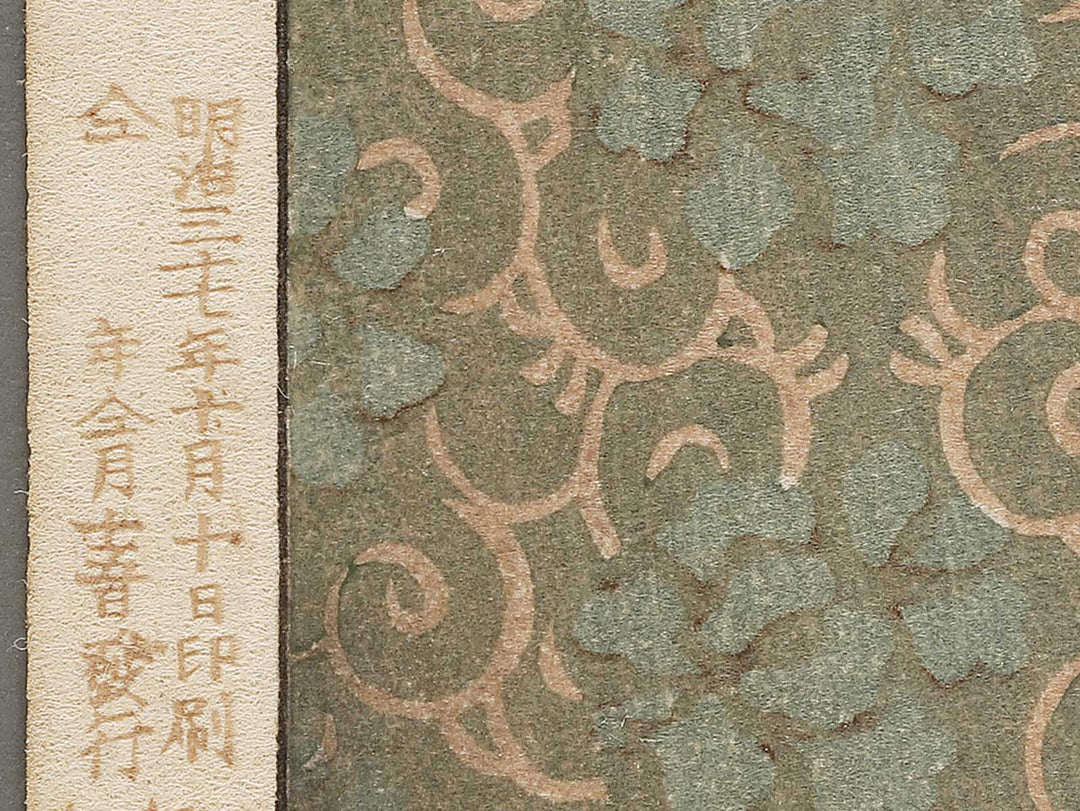 明治三十七年十月十日印刷
仝年仝月十五日發行